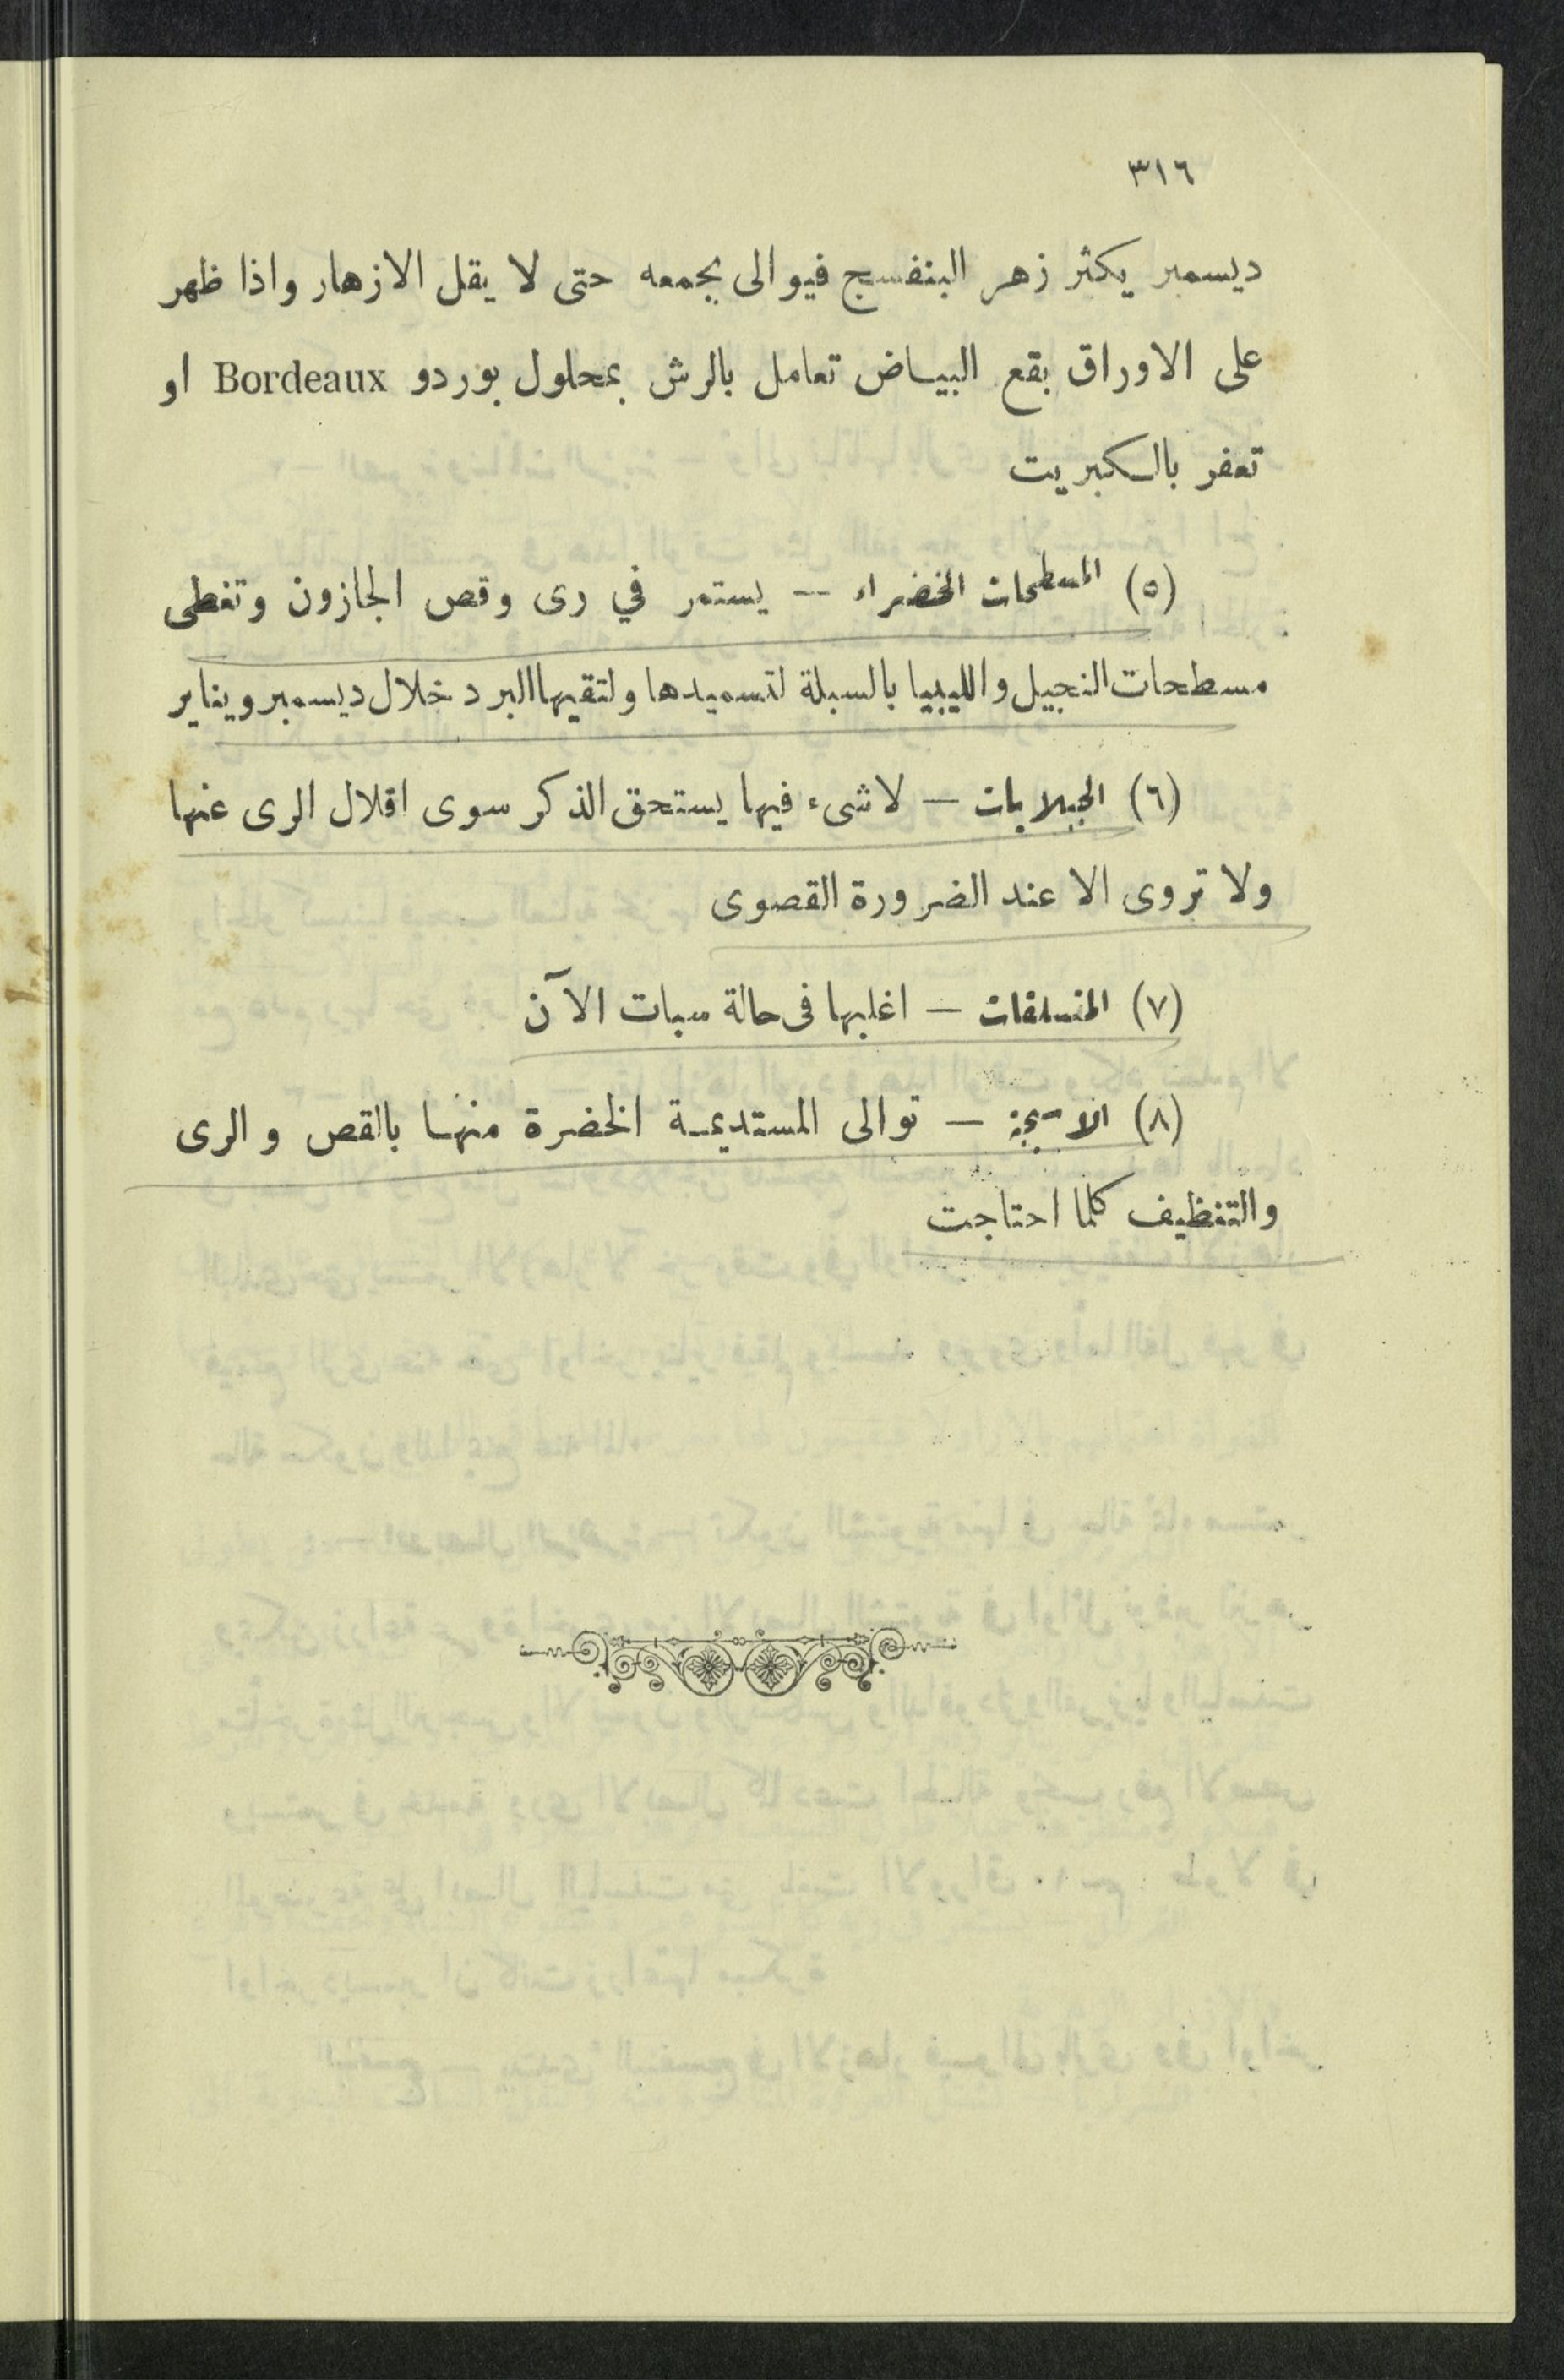 ٣١٦
ديسمبر يكثر زهر البنفسج فيوالى بجمعه حتى لا يقل الازهار واذا ظهر
على الاوراق بقع البياض تعامل بالرش بمحلول بوردو Bordeaux او
تعفر بالكبريت
(٥) المسطحات الخضراء — يستمر في رى وقص الجازون وتغطى
مسطحات النجيل والليبيا بالسبلة لتسميدها ولتقيها البرد خلال ديسمبر ويناير
(٦) الجبلايات — لا شىء فيها يستحق الذكر سوى اقلال الرى عنها
ولا تروى الا عند الضرورة القصوى
(٧) المتسلقات — اغلبها فى حالة سبات الآن
(٨) الاسيجة — توالى المستديمة الخضرة منها بالقص والرى
والتنظيف كلما احتاجت